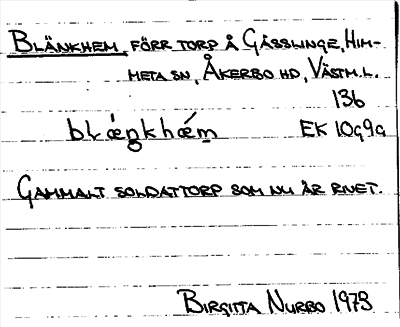 BLÄNKHEM, FÖRR TORP Å GÄSSLINGE, HIM-
META SN, ÅKERBO HD, VÄSTM.L.
136
blæ̀ŋkhæ̀m EK 10g9a
GAMMALT SOLDATTORP SOM NU ÄR RIVET.
BIRGITTA NURBO 1973